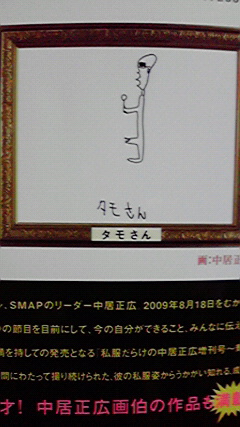 タモさん
タモさん
画:中居
SMAPのリーダー中居正広 2009年8月18日をむか
の節目を目前にして、今の自分ができること、みんなに伝え
を持しての発売となる「私服だらけの中居正広増刊号〜
間にわたって撮り続けられた、彼の私服姿からうかがい知れる、成
才! 中居正広画伯の作品も満載